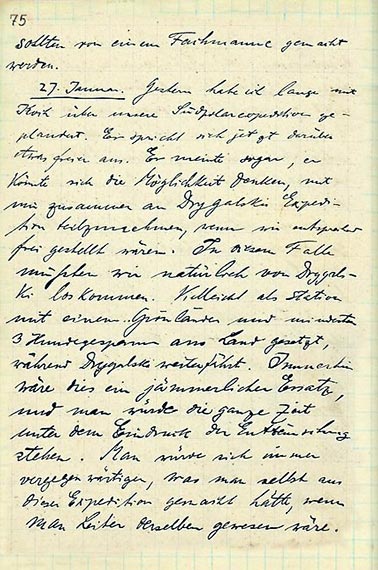 75
sollten von einem Fachmanne gemacht
werden.
27. Januar. Gestern habe ich lange mit
Koch über unsere Südpolarexpedition ge-
plaudert. Er spricht sich jetzt darüber
etwas freier aus. Er meinte sogar, er
könnte sich die Möglichkeit denken, mit
mir zusammen an Drygalskis Expedi-
tion teilzunehmen, wenn wir entsprechend
frei gestellt wären. In diesem Falle
müssten wir natürlich von Drygals-
ki loskommen. Vielleicht als Station
mit einem Grönländer und mindestens
3 Hundegespannen ans Land gesetzt,
während Drygalski weiterfährt. Immerhin
wäre dies ein jämmerlicher Ersatz,
und man würde die ganze Zeit
unter dem Eindruck der Enttäuschung
stehen. Man würde sich immer
vergegenwärtigen, was man selbst aus
dieser Expedition gemacht hätte, wenn
man Leiter derselben gewesen wäre.